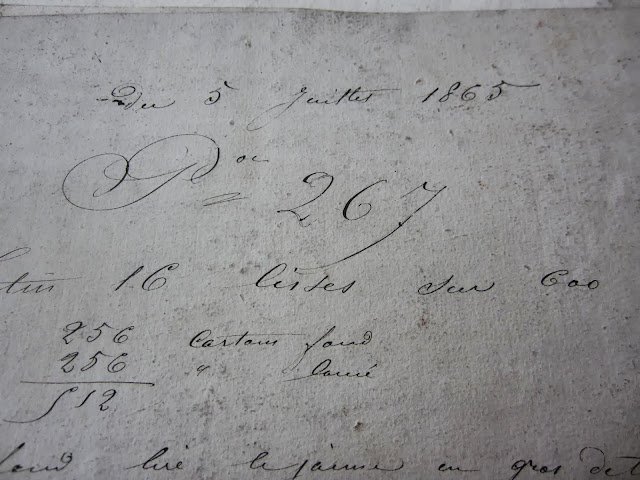 du 5 Juillet 1865
Pon 267
16 lisses sur 600
256 Cartons fond
256 " lancé
512
fond lire le jaune en gros det